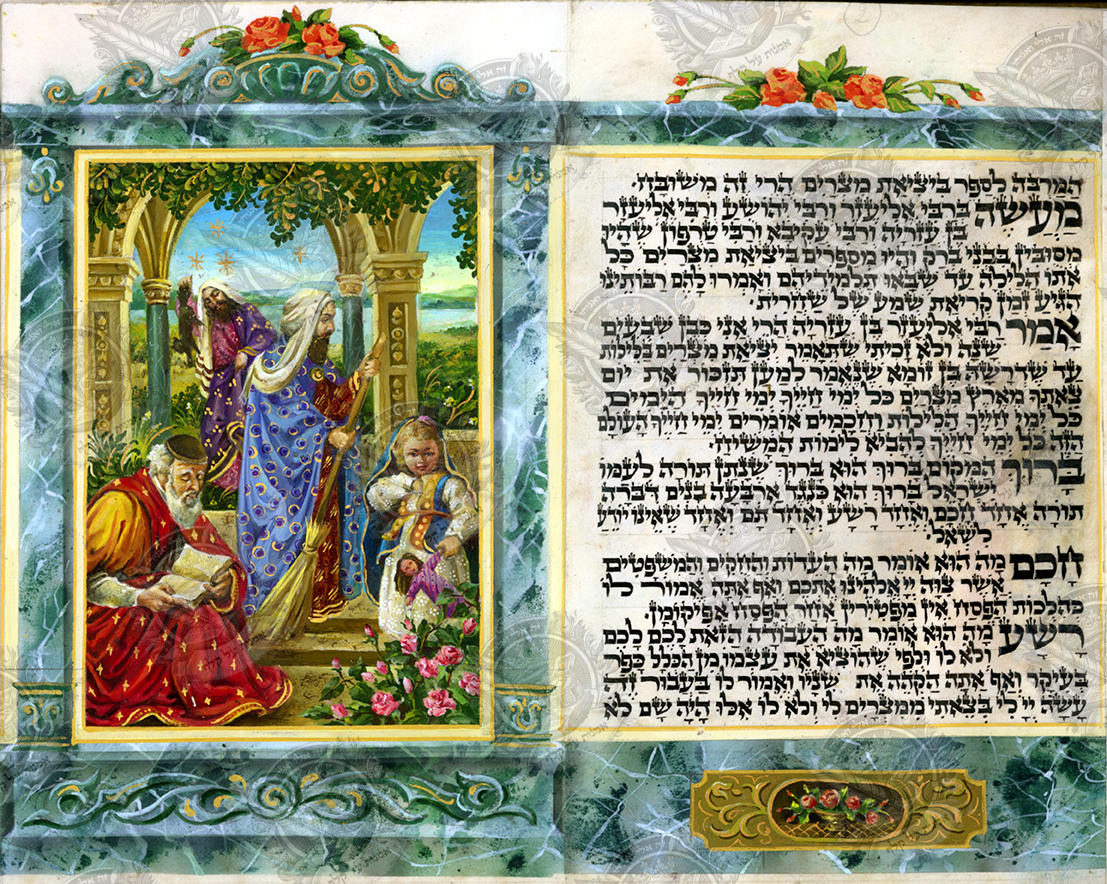 המרבה לספר ביציאת מצרים הרי זה משובח.
מעשה ברבי אליעזר ורבי יהושע ורבי אליעזר
בן עזריה ורבי עקיבא ורבי טרפון שהיו
מסובין בבני ברק והיו מספרים ביציאת מצרים כל
אתו הלילה עד שבאו תלמידיהם ואמרו להם רבותינו
הגיע זמן קריאת שמע של שחרית.
אמר רבי אליעזר בן עזריה הרי אני כבן שבעים
שנה ולא זכיתי שתאמר יציאת מצרים בלילות
עד שדרשה בן זומא שנאמר למען תזכור את יום
צאתך מארץ מצרים כל ימי חייך ימי חייך הימים
כל ימי חייך הלילות וחכמים אומרים ימי חייך העולם
הזה כל ימי חייך להביא לימות המשיח.
ברוך המקום ברוך הוא ברוך שנתן תורה לעמו
ישראל ברוך הוא כנגד ארבעה בנים דברה
תורה אחד חכם ואחד רשע ואחד תם ואחד שאינו יודע
לישאל.
חכם מה הוא אומר מה העדות והחקים והמשפטים
אשר צוה יי אלהינו אתכם ואף אתה אמור לו
כהלכות הפסח אין מפטירין אחר הפסח אפיקומן.
רשע מה הוא אומר מה העבודה הזאת לכם לכם
ולא לו ולפי שהוציא את עצמו מן הכלל כפר
בעיקר ואף אתה הקהה את שניו ואמור לו בעבור זה
עשה יי לי בצאתי ממצרים לי ולא לו אלו היה שם לא